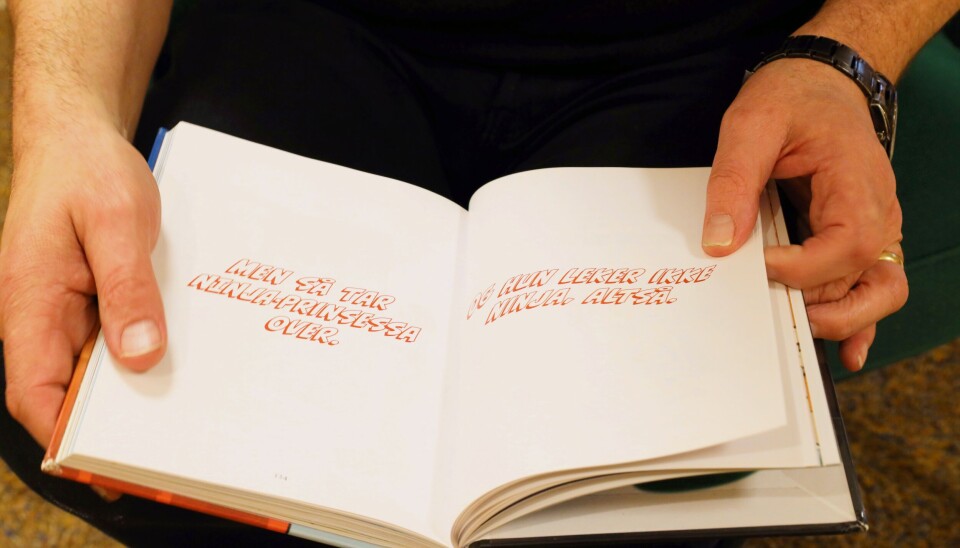 MEN SÅ TAR
NINJA-PRINSESSA
OVER.
OG HUN LEKER IKKE
NINJA. ALTSÅ.